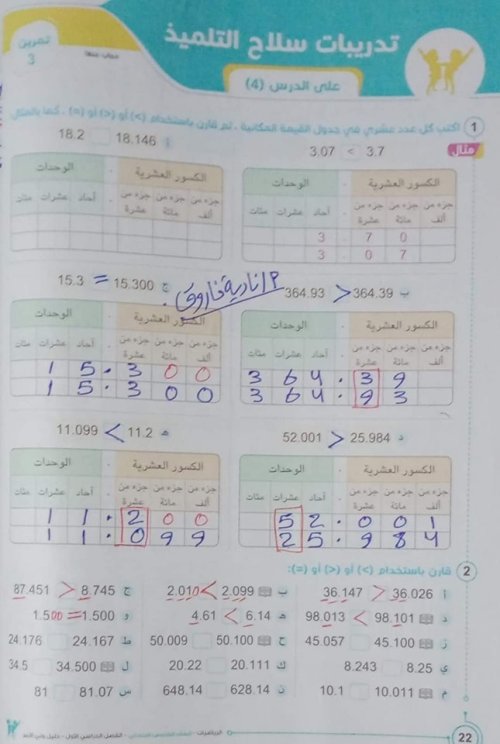 تدريبات سلاح التلميذ
تمرين 3
على الدرس (4)
1 اكتب كل عدد عشري في جدول القيمة المكانية ، ثم قارن باستخدام (>) أو (<) أو (=) ، كما بالمثال
مثال 3.07 < 3.7
أ 18.146 18.2
الكسور العشرية . الوحدات
جزء من ألف جزء من مائة جزء من عشرة . آحاد عشرات مئات
3 . 7 0
3 . 0 7
الكسور العشرية . الوحدات
جزء من ألف جزء من مائة جزء من عشرة . آحاد عشرات مئات
ب 364.93 > 364.39
أ/ نادية فاروق
ج 15.3 = 15.300
الكسور العشرية . الوحدات
جزء من ألف جزء من مائة جزء من عشرة . آحاد عشرات مئات
3 6 4 . 3 9
3 6 4 . 9 3
الكسور العشرية . الوحدات
جزء من ألف جزء من مائة جزء من عشرة . آحاد عشرات مئات
1 5 . 3 0 0
1 5 . 3 0 0
د 52.001 > 25.984
هـ 11.099 < 11.2
الكسور العشرية . الوحدات
جزء من ألف جزء من مائة جزء من عشرة . آحاد عشرات مئات
5 2 . 0 0 1
2 5 . 9 8 4
الكسور العشرية . الوحدات
جزء من ألف جزء من مائة جزء من عشرة . آحاد عشرات مئات
1 1 . 2 0 0
1 1 . 0 9 9
2 قارن باستخدام (>) أو (<) أو (=):
أ 36.147 > 36.026 ب 2.010 < 2.099 ج 87.451 > 8.745
د 98.013 < 98.101 هـ 4.61 < 6.14 و 1.500 = 1.500
ز 45.057 45.100 ح 50.009 50.100 ط 24.176 24.167
ي 8.243 8.25 ك 20.22 20.111 ل 34.5 34.500
م 10.1 10.011 ن 648.14 628.14 س 81 81.07
22